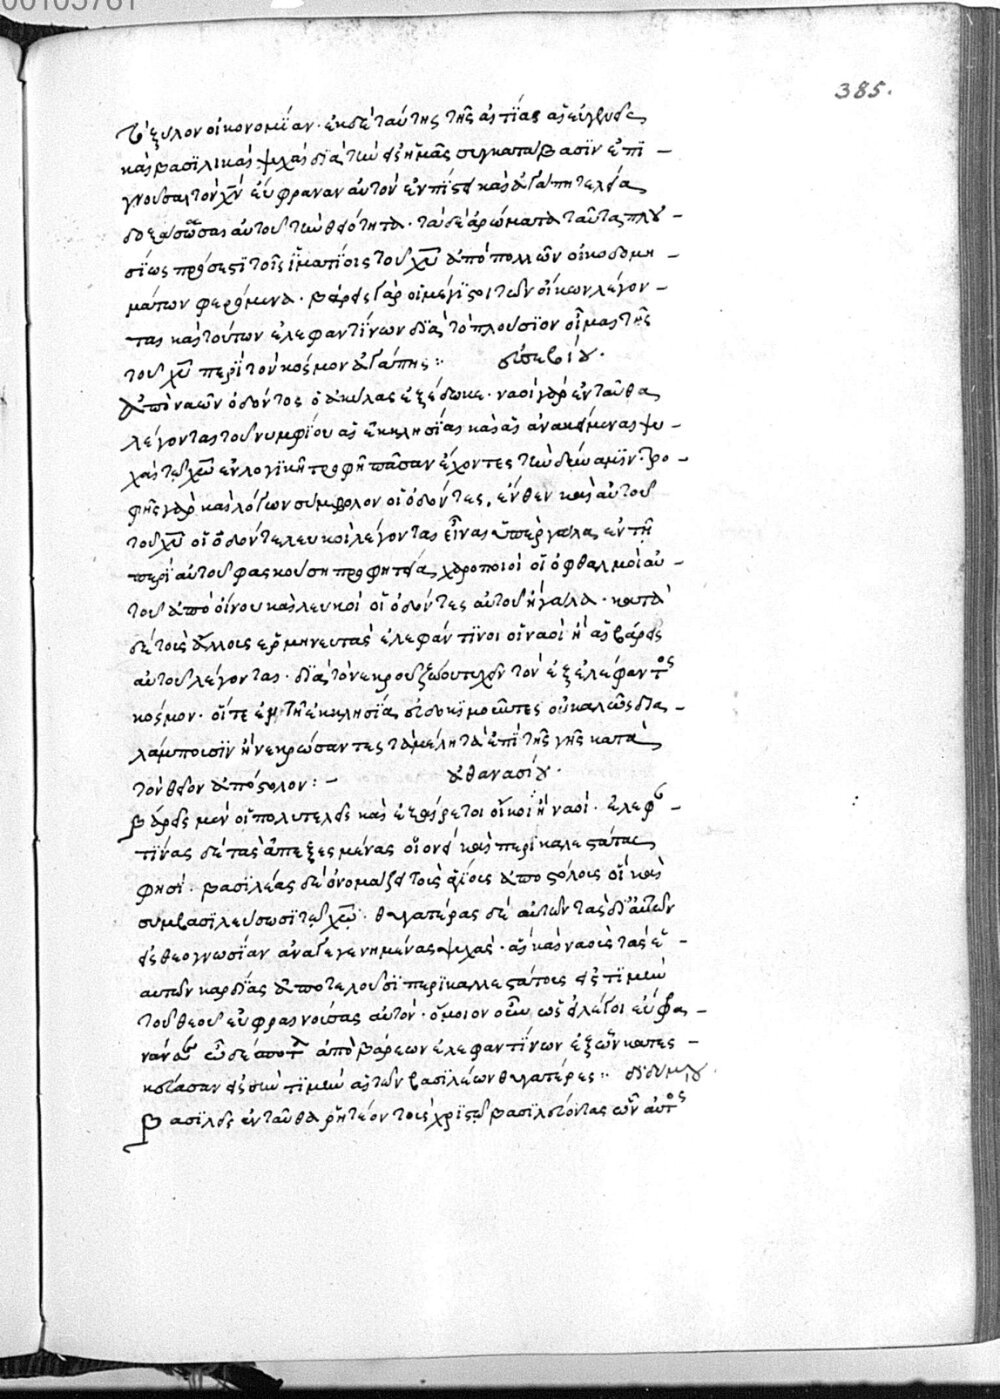 00105761
385.
τὸ ξύλον οἰκονομΐαν. ἐκ δὲ ταύτης τῆς αἰτΐας αἱ εὐγενεῖς
καὶ βασιλικαὶ ψυχαὶ διὰ τὴν εἰς ἡμᾶς συγκατάβασϊν ἐπϊ –
γνοῦσαι τὸν χν εὔφραναν αὐτὸν ἐν πίστει καὶ ἀγάπη τελεία
δοξάσασαι αὐτοῦ τὴν θεότητα. τὰ δὲ ἀρώματα ταῦτα πλου –
σΐως πρόσεστϊ τοῖς ἱματΐοις τοῦ χυ ἀπὸ πολλῶν οἰκοδομη –
μάτων φερόμενα. βάρεις γὰρ οἱ μέγϊστοι τῶν οἴκων λέγον –
ται καὶ τούτων ἐλεφαντΐνων διὰ τὸ πλούσϊον οἶμαι τῆς
τοῦ χυ περὶ τὸν κόσμον ἀγάπης:· εὐσεβίου.
ἀπὸ ναῶν ὀδόντος ὁ ἀκύλας ἐξέδωκε. ναοὶ γὰρ ἐνταῦθα
λέγονται τοῦ νυμφΐου αἱ ἐκκλησΐαι καὶ αἱ ἀνακείμεναι ψυ –
χαὶ τῷ χω ἐν λογϊκῇ τροφῇ πᾶσαν ἔχοντες τὴν δύναμϊν. τρο –
φῆς γὰρ καὶ λόγων σύμβολον οἱ ὀδόντες, ἔνθεν καὶ αὐτοῦ
τοῦ χυ οἱ ὀδόντες λευκοὶ λέγονται εἶναι ὑπὲρ γάλα, ἐν τῇ
περὶ αὐτοῦ φασκούση προφητεία, χαροποιοὶ οἱ ὀφθαλμοὶ αὐ –
τοῦ ἀπὸ οἴνου καὶ λευκοὶ οἱ ὀδόντες αὐτοῦ ἢ γάλα. κατὰ
δὲ τοὺς ἄλλους ἑρμηνευτὰς ἐλεφάντϊνοι οἱ ναοὶ ἢ αἱ βάρεις
αὐτοῦ λέγονται. διὰ τὸν ἐκ τὸν ἐξ ἐλέφαντος
κόσμον. οἵ τε ἐν τῇ ἐκκλησΐα εὐδοκϊμοῦντες οὐ καλῶς δϊα –
λάμπουσϊν ἢ νεκρώσαντες τὰ μέλη τὰ ἐπὶ τῆς γῆς κατὰ
τὸν θεῖον ἀπόστολον: – ἀθανασίου.
Βάρεις μὲν οἱ πολυτελεῖς καὶ ἐξαίρετοι οἶκοι ἢ ναοί. ἐλεφαν –
τΐνας δὲ τὰς ἀπεξεσμένας οἱονεὶ καὶ περϊκαλλεστάτας
φησί. βασιλέας δὲ ὀνομάζει τοὺς ἁγίους ἀποστόλους οἳ καὶ
συμβασιλεύσωσϊ τῷ χω. θυγατέρας δὲ αὐτῶν τὰς δι' αὐτῶν
εἰς θεογνωσΐαν ἀναγεγενημένας ψυχάς. αἳ καὶ ναοὺς τὰς ἑ –
αυτῶν καρδΐας ἀποτελοῦσϊ περϊκαλλεστάτους εἰς τϊμὴν
τοῦ θεοῦ εὐφραίνουσαι αὐτόν. ὅμοιον οὖν ὡς εἰ λέγοι εὔφρα –
νάν σε ὧδέ ποτε ἀπὸ βάρεων ἐλεφαντΐνων ἐξ ὧν κατεσ –
κεύασαν εἰς σὴν τϊμὴν αἱ τῶν βασιλέων θυγατέρες:· διδύμου.
Βασϊλεῖς ἐνταῦθα ῥητέον τοὺς χριστῷ βασιλεύοντας ὧν αὐτὸς